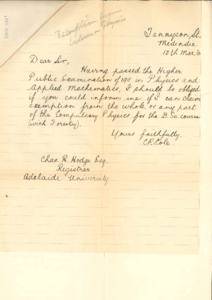 Tennyson St.
Medindie.
12th Mar.
Dear Sir,
Having passed the Higher
Public Examination of 1911 in Physics and
Applied Mathematics, I should be obliged
if you could inform me if I can claim
exemption from the whole or any part
of the Compulsory Physics for the B.Sc. course
(with Forestry).
Yours faithfully,
C.R. Cole
Chas R. Hodge Esq.
Registrar
Adelaide University